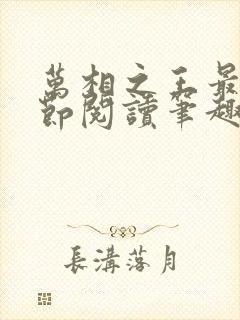 萬相之王最
節閱讀筆趣
長溝落月